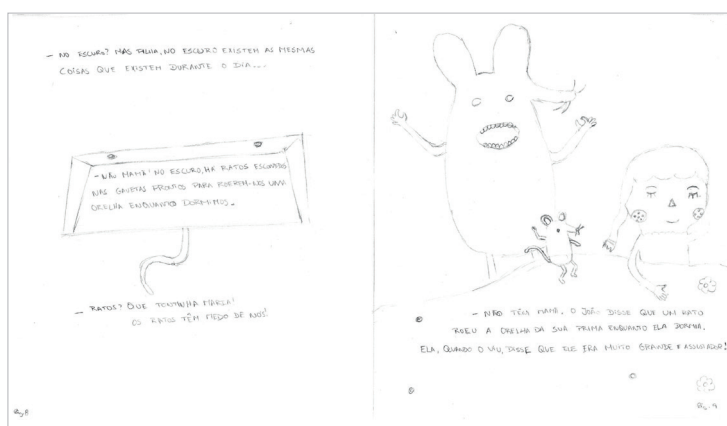 — NO ESCURO? MAS FILHA, NO ESCURO EXISTEM AS MESMAS
COISAS QUE EXISTEM DURANTE O DIA...
— NÃO MAMÃ! NO ESCURO, HÁ RATOS ESCONDIDOS
NAS GAVETAS PRONTOS PARA ROEREM-NOS UMA
ORELHA ENQUANTO DORMIMOS.
— RATOS? QUE TONTINHA MARIA!
OS RATOS TÊM MEDO DE NÓS!
Pág. 8
— NÃO TÊM MAMÃ. O JOÃO DISSE QUE UM RATO
ROEU A ORELHA DA SUA PRIMA ENQUANTO ELA DORMIA.
ELA, QUANDO O VIU, DISSE QUE ELE ERA MUITO GRANDE E ASSUSTADOR!
Pág. 9